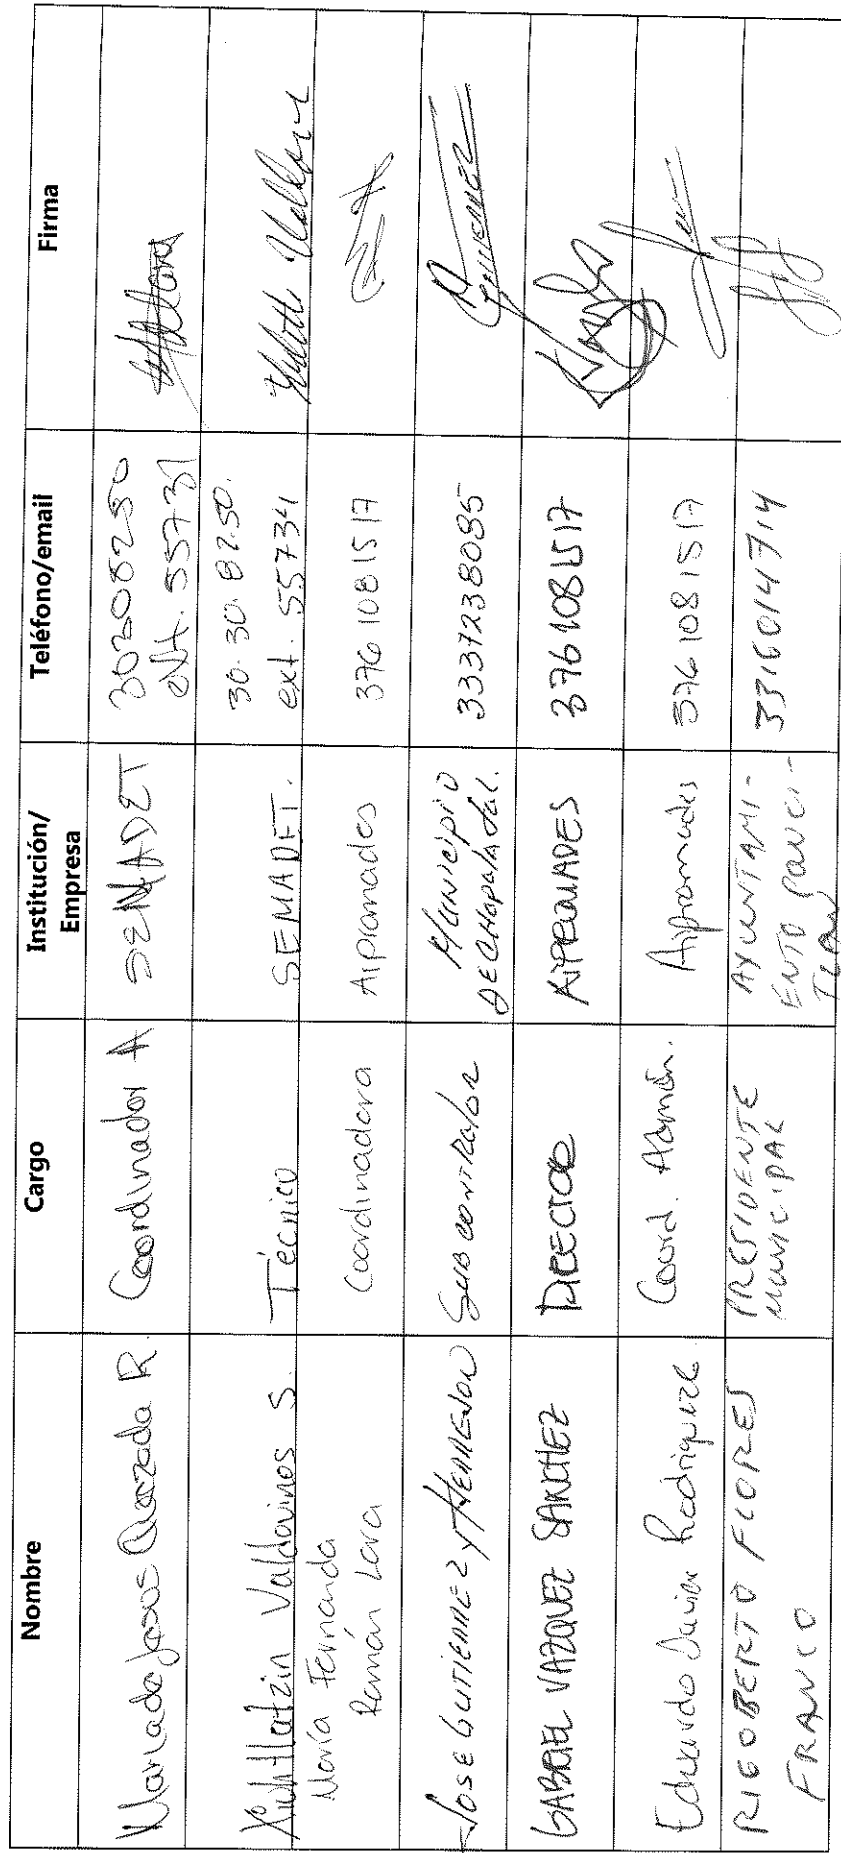 Nombre
Cargo
Institución/
Empresa
Teléfono/email
Firma
Maria de Jesus Quezada R.
Coordinador A
SEMADET
30308250
ext. 55731
Xiuhtlatzin Valdovinos S.
Técnico
SEMADET.
30.30.82.50.
ext. 55734
María Fernanda
Román Lara
Coordinadora
Aipromades
376 108 1517
Jose Gutierrez y Hermosillo
Sub contralor
Municipio
de Chapala Jal.
3337238085
Gutierrez
GABRIEL VAZQUEZ SANCHEZ
DIRECTOR
AIPROMADES
376 108 1517
Eduardo Javier Rodriguez
Coord. Admón.
Aipromades
376 108 1517
RIGOBERTO FLORES
FRANCO
PRESIDENTE
MUNICIPAL
AYUNTAMI-
ENTO PONCI-
TLAN
3316014714